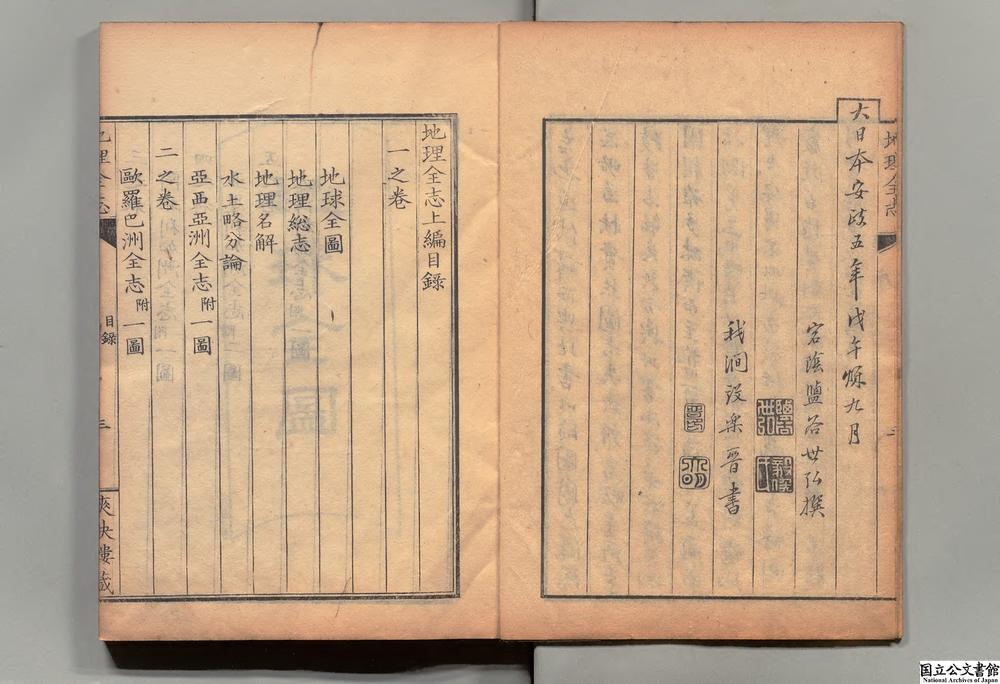 大日本安政五年戊午秌九月
宕陰鹽谷世弘撰
我澗設楽晉書
地理全志
地理全志上編目錄
一之卷
地球全圖
地理総志
地理名解
水土略分論
亞西亞洲全志附一圖
二之卷
歐羅巴洲全志附一圖
地理全志
目錄
三
爽快樓藏
国立公文書館
National Archives of Japan